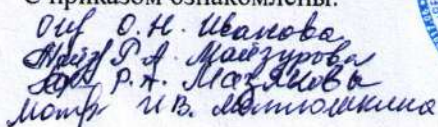 С приказом ознакомлены:
О.Н. Иванова
Р.А. Майзурова
Р.А. Мазянова
И.В. Матюшкина